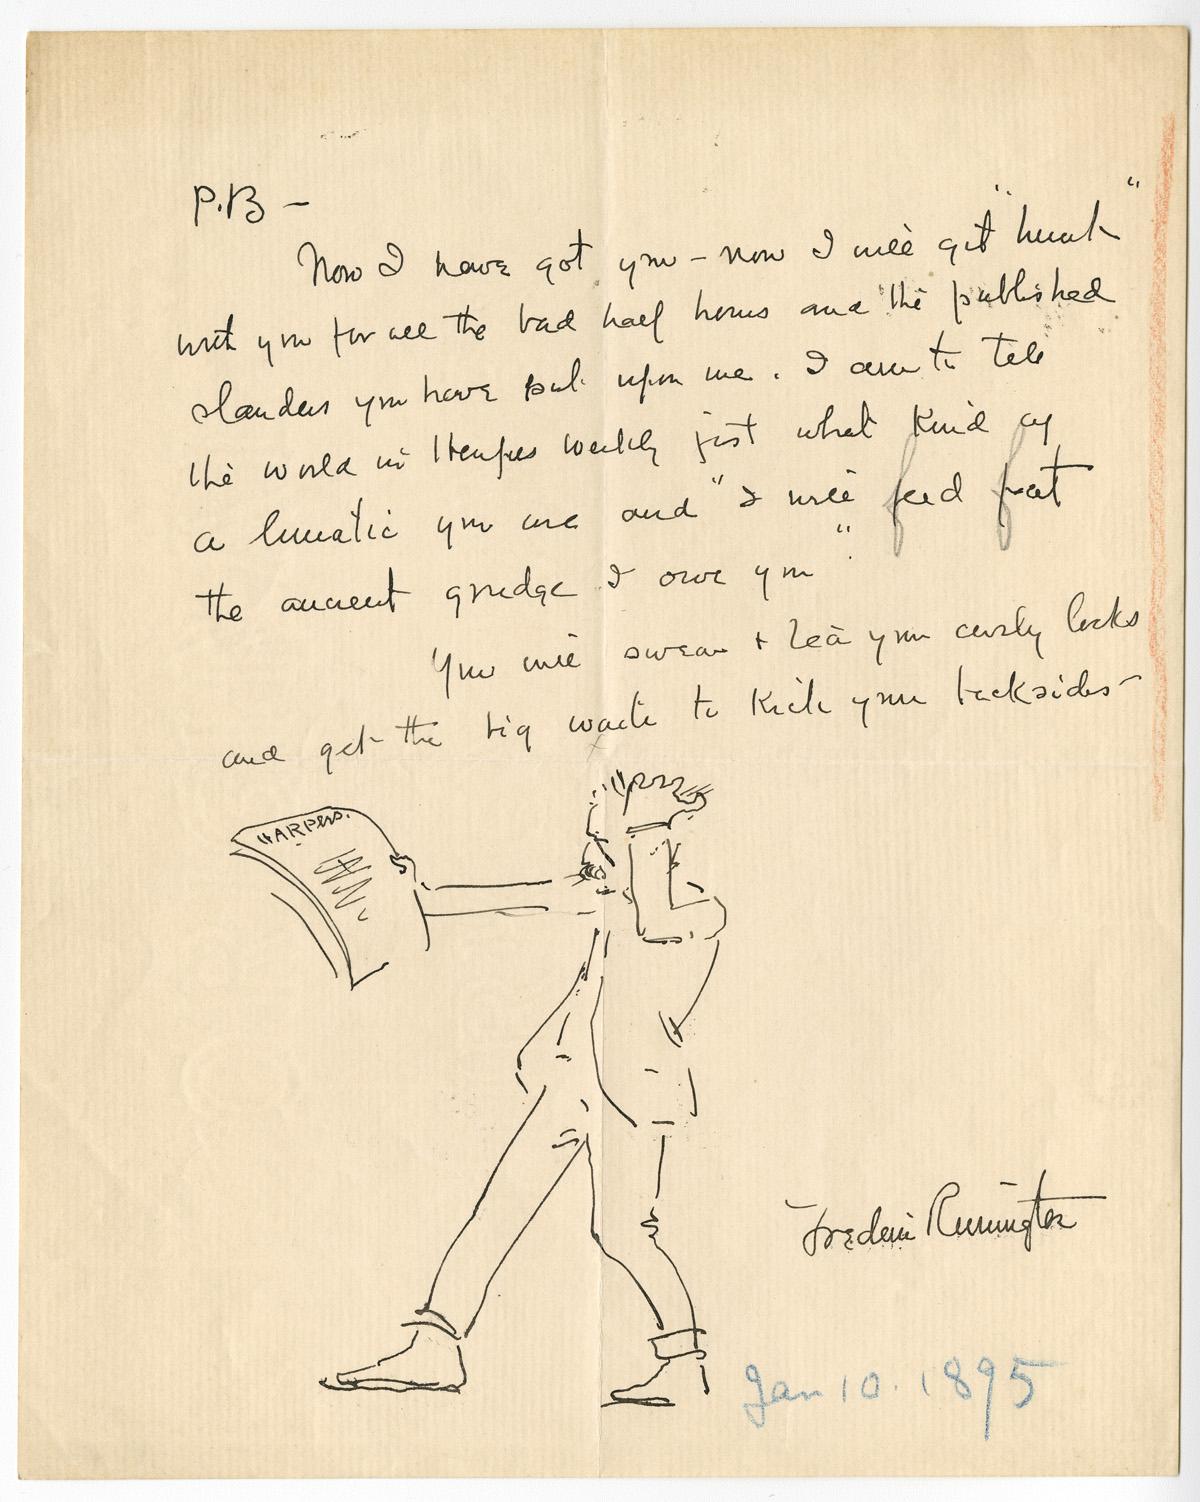 P.B –
Now I have got you – now I will get "hunk"
with you for all the bad half hours and the published
slanders you have put upon me. I am to tell
the world in Harpers Weekly just what kind of
a lunatic you are and "I will feed fat
the ancient grudge I owe you".
You will swear + tear your curly locks
and get the big waiter to kick your backsides –
HARPERS.
Frederic Remington
Jan 10. 1895